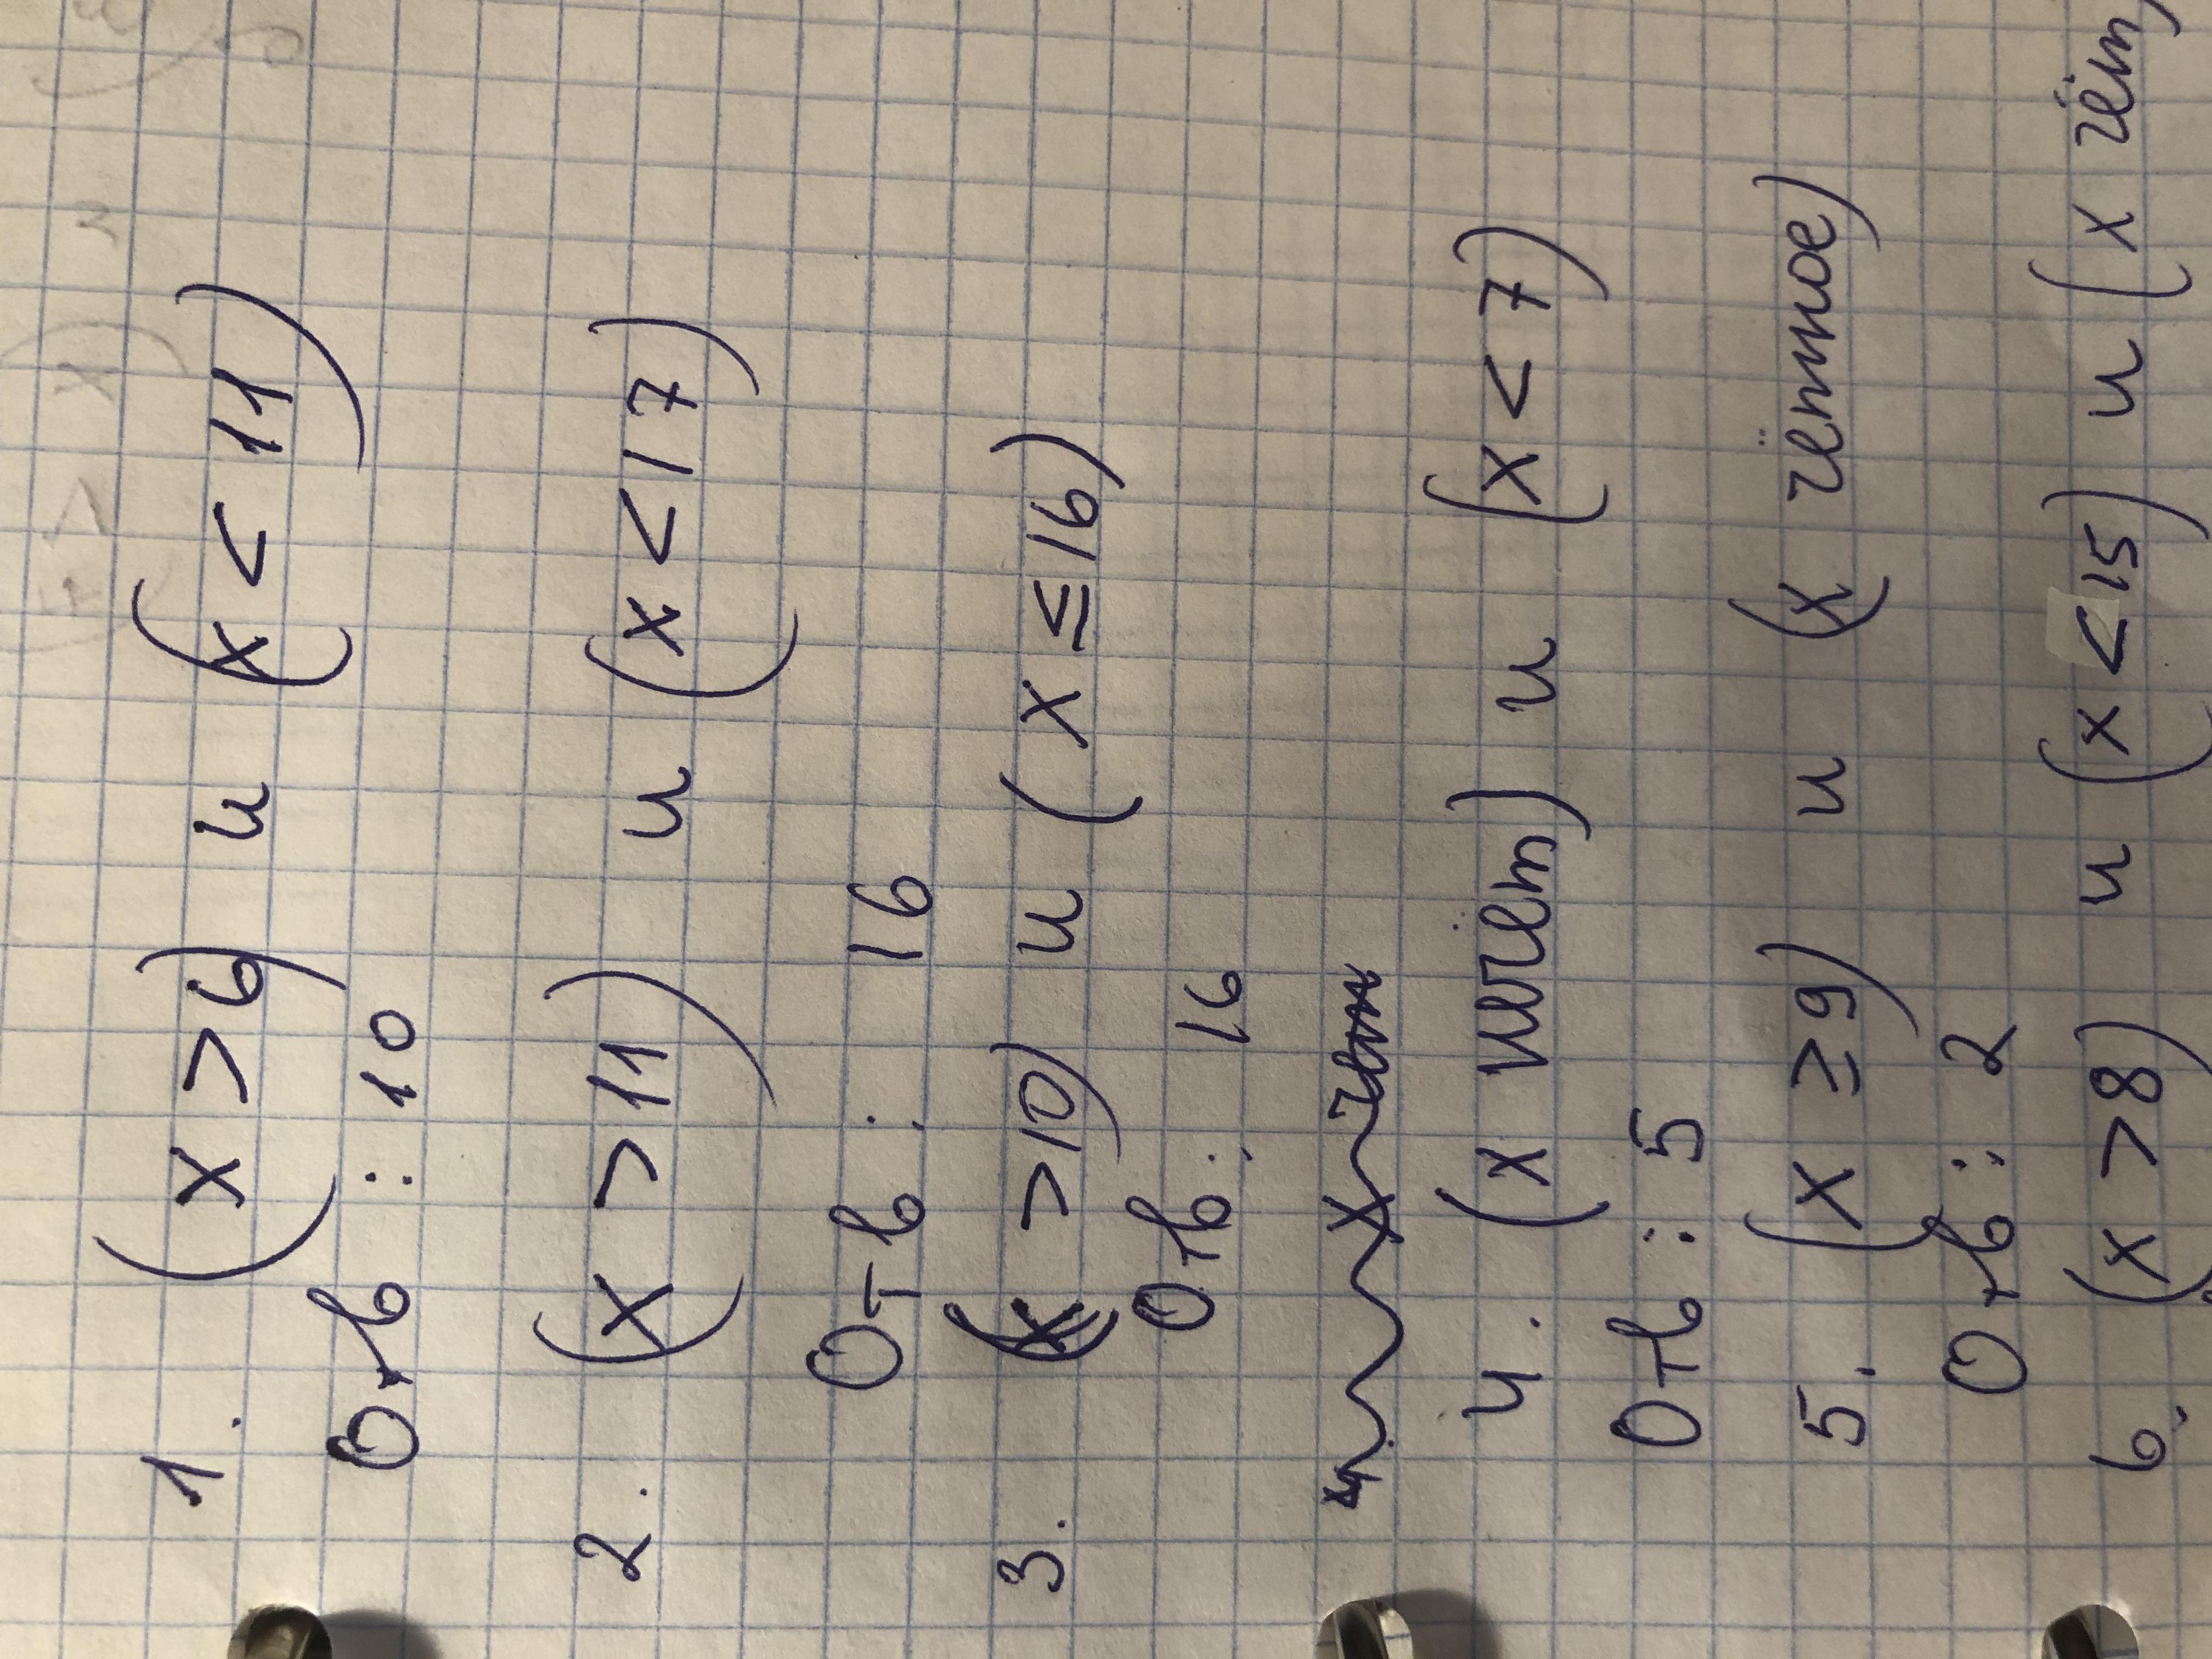 1. (x > 6) и (x < 11)
Отв : 10
2. (x > 11) и (x < 17)
Отв : 16
3. (x > 10) и (x ≤ 16)
Отв : 16
4. (x нечёт) и (x < 7)
Отв : 5
5. (x ≥ 9) и (x чётное)
Отв : 2
6. (x > 8) и (x < 15) и (x чёт)